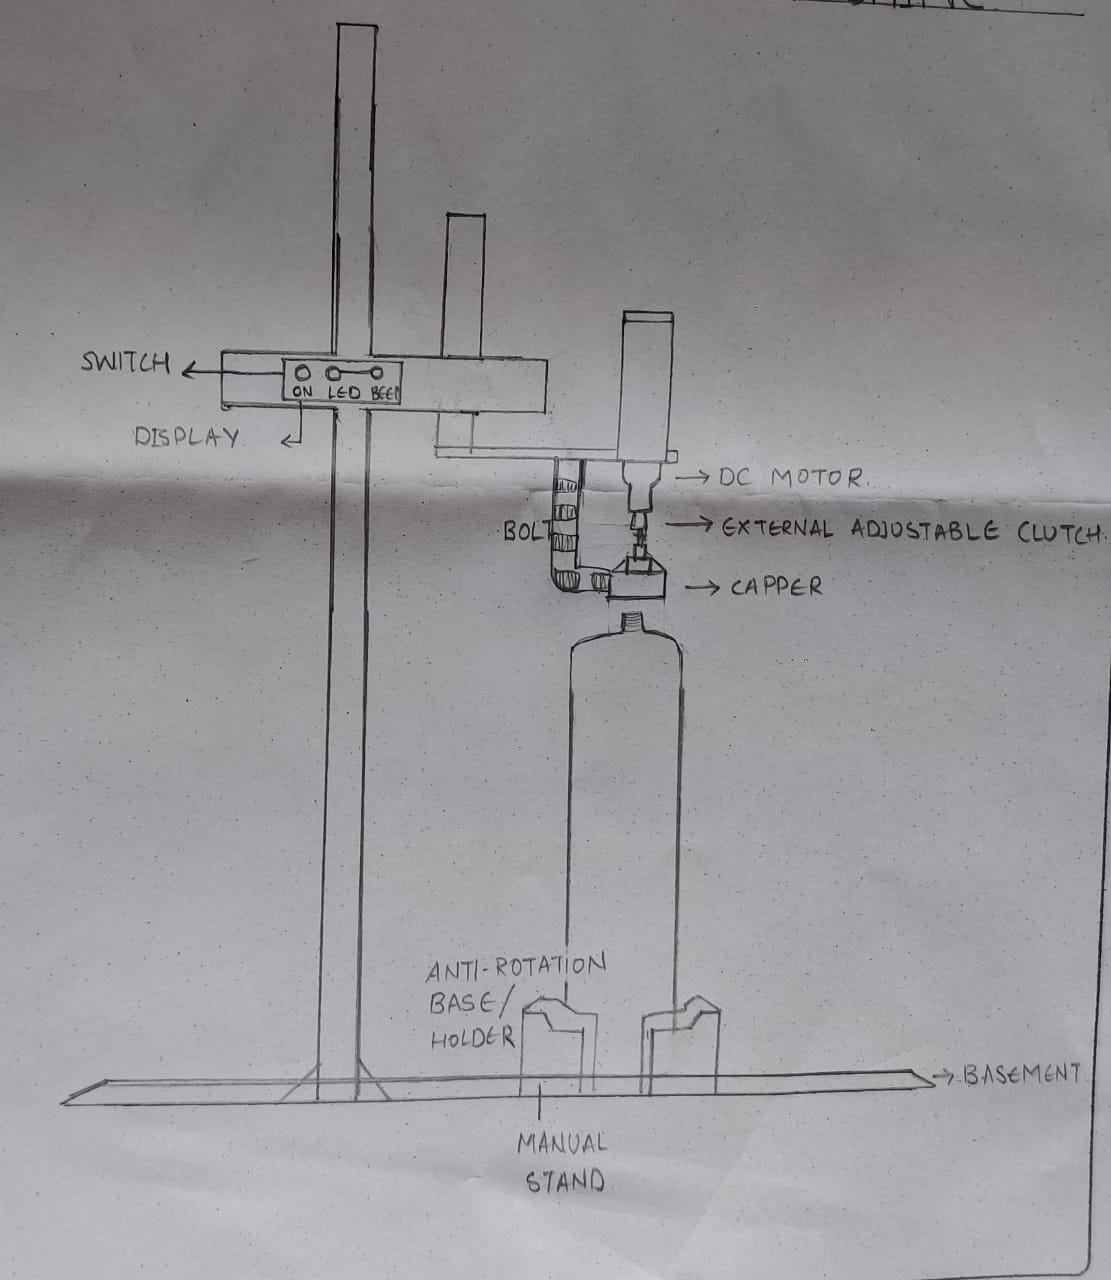 SWITCH
ON LED BEEP
DISPLAY
DC MOTOR.
BOLT
EXTERNAL ADJUSTABLE CLUTCH.
CAPPER
ANTI-ROTATION
BASE/
HOLDER
BASEMENT
MANUAL
STAND